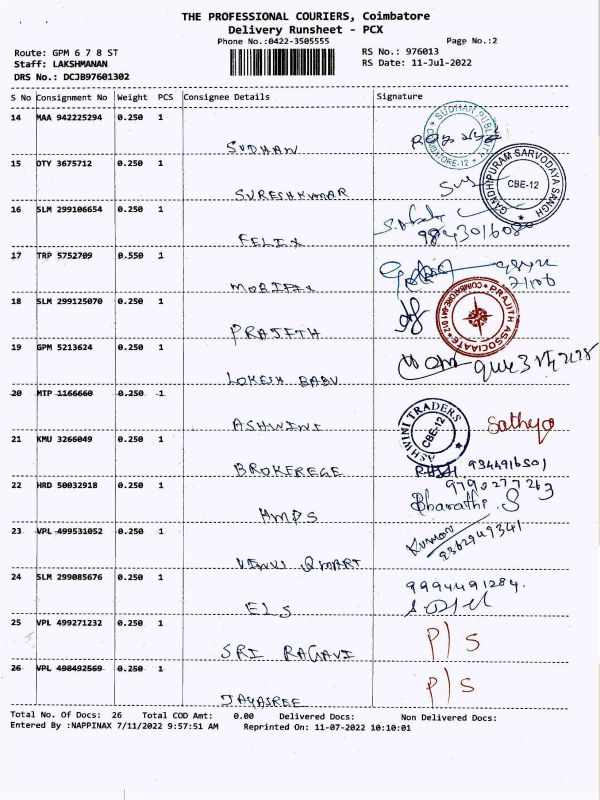 THE PROFESSIONAL COURIERS, Coimbatore
Delivery Runsheet - PCX
Phone No.:0422-3505555 Page No.:2
Route: GPM 6 7 8 ST RS No.: 976013
Staff: LAKSHMANAN RS Date: 11-Jul-2022
DRS No.: DCJB97601302
S No Consignment No Weight PCS Consignee Details Signature
14 MAA 942225294 0.250 1
SUDHAN
SUDHAN PUBLICITY * COIMBATORE-12 *
15 OTY 3675712 0.250 1
SURESHKUMAR
GANDHIPURAM SARVODAYA SANGH CBE-12
16 SLM 299106654 0.250 1
FELIX
17 TRP 5752709 0.550 1
18 SLM 299125070 0.250 1
PRAJITH
PRAJITH ASSOCIAATE
19 GPM 5213624 0.250 1
LOKESH BABU
20 MTP 1166660 0.250 1
ASHWINI
ASHWINI TRADERS CBE-12
Sathya
21 KMU 3266049 0.250 1
BROKEREGE
9344916501
22 HRD 50032918 0.250 1
AMPS
9790277263
Bharathi . S
23 VPL 499531052 0.250 1
VENU QMART
Kumar
9362949341
24 SLM 299085676 0.250 1
ELS
9994491284.
25 VPL 499271232 0.250 1
SRI RAGAVI
P/S
26 VPL 498492569 0.250 1
JAYASREE
P/S
Total No. Of Docs: 26 Total COD Amt: 0.00 Delivered Docs: Non Delivered Docs:
Entered By :NAPPINAX 7/11/2022 9:57:51 AM Reprinted On: 11-07-2022 10:10:01